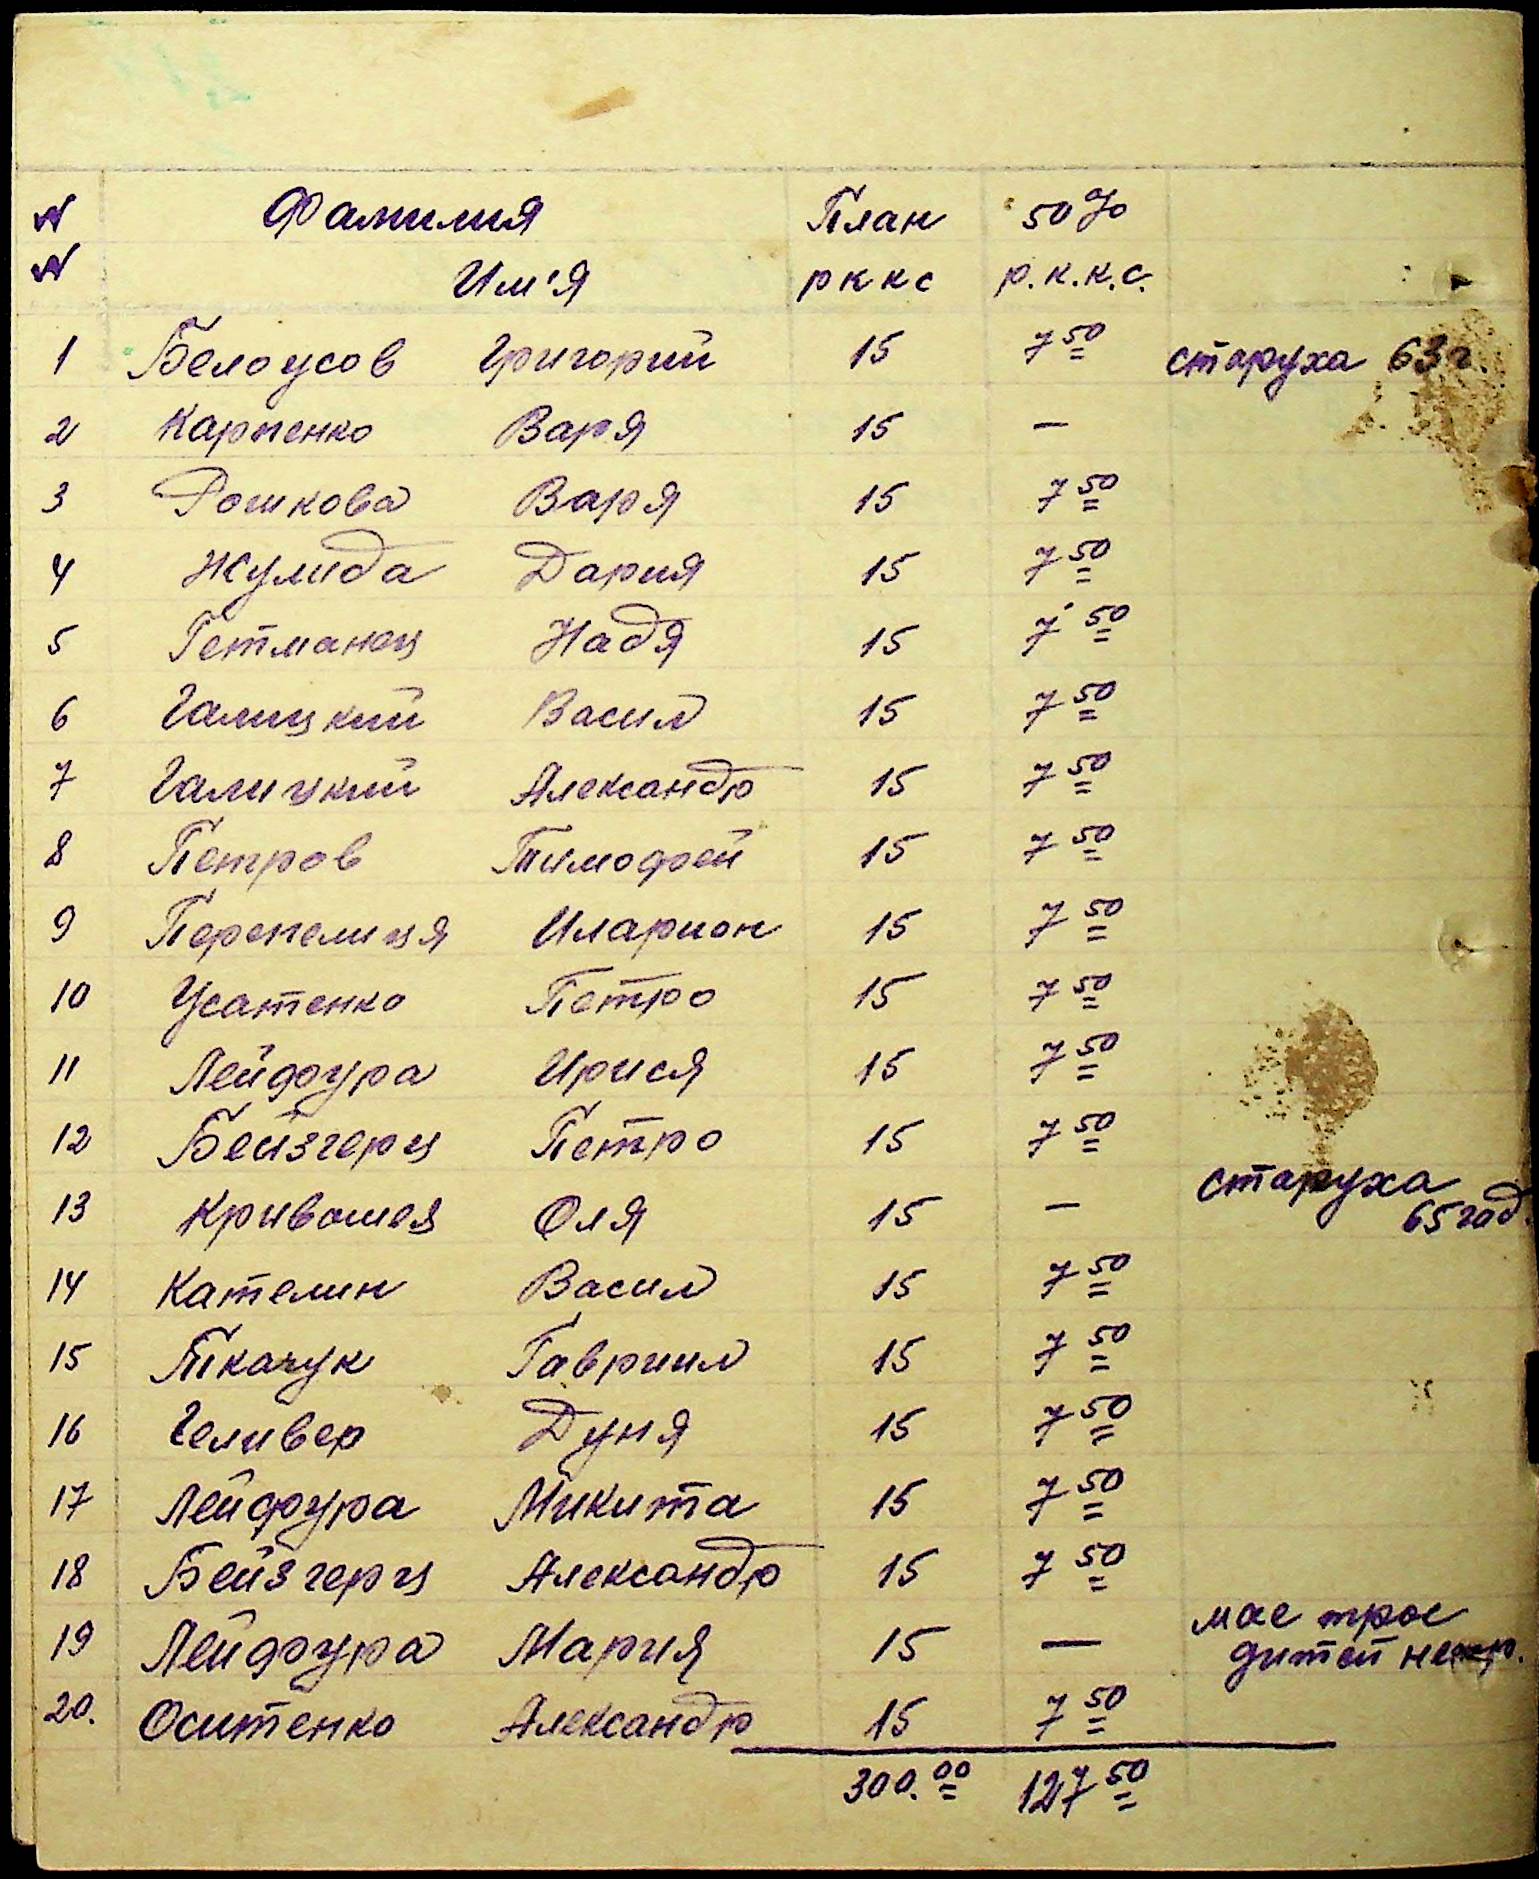 № Фамилия План 50%
№ Им'я р к к с р.к.к.с.
1 Белоусов Григорий 15 7 50 старуха 63 г.
2 Карпенко Варя 15 —
3 Рошкова Варя 15 7 50
4 Жулида Дария 15 7 50
5 Гетманец Надя 15 7 50
6 Галицкий Васил 15 7 50
7 Галицкий Александр 15 7 50
8 Петров Тимофей 15 7 50
9 Перепелиця Иларион 15 7 50
10 Усатенко Петро 15 7 50
11 Лейфура Ирися 15 7 50
12 Бейзгерц Петро 15 7 50
13 Кривошея Оля 15 — старуха
65 год.
14 Кателин Васил 15 7 50
15 Ткачук Гавриил 15 7 50
16 Геливер Дуня 15 7 50
17 Лейфура Микита 15 7 50
18 Бейзгерц Александр 15 7 50
19 Лейфура Мария 15 — мае трое
дитей
20. Оситенко Александр 15 7 50
300.00 127 50